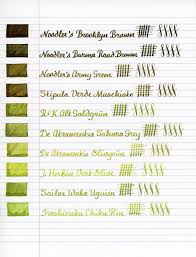 Noodler's Brooklyn Brown
Noodler's Burma Road Brown
Noodler's Army Green
Stipula Verde Muschiato
R&K Alt Goldgrün
De Atramentis Sahara Grey
De Atramentis Olivgrün
J. Herbin Vert Olive
Sailor Waka Uguisu
Iroshizuku Chiku Rin